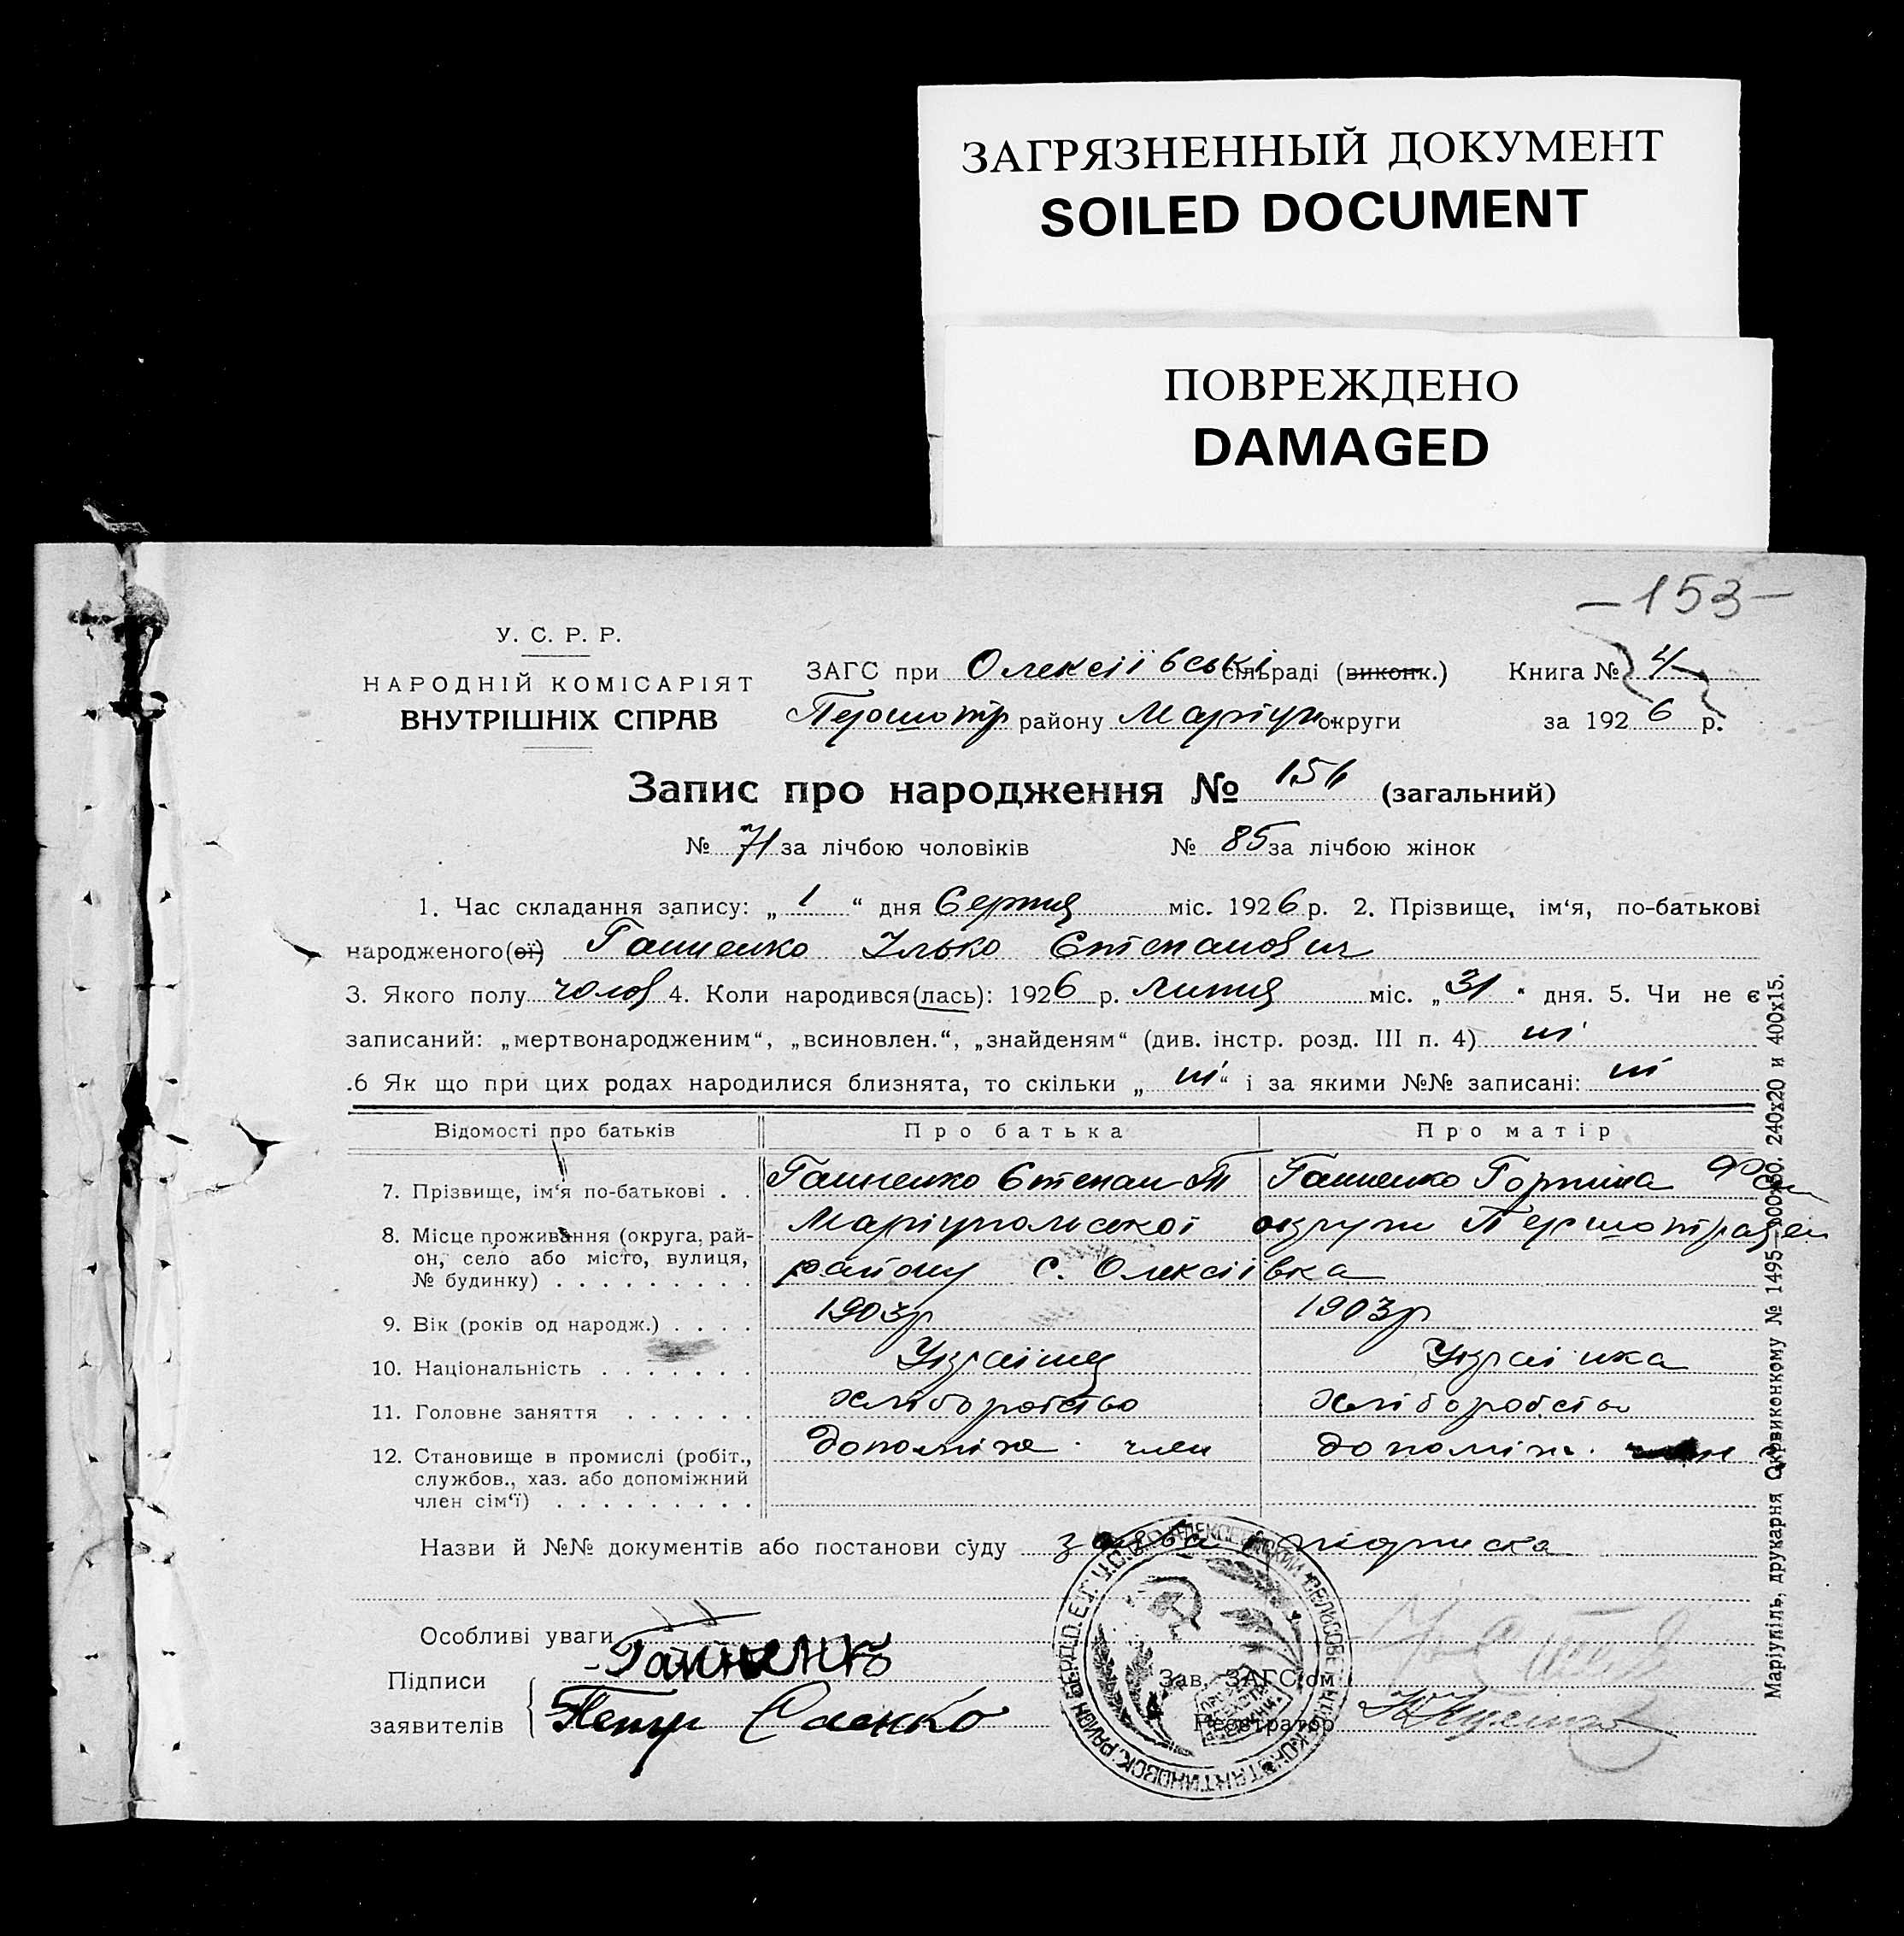 ЗАГРЯЗНЕННЫЙ ДОКУМЕНТ
SOILED DOCUMENT
ПОВРЕЖДЕНО
DAMAGED
—153—
У. С. Р. Р.
НАРОДНІЙ КОМІСАРІЯТ
ВНУТРІШНІХ СПРАВ
ЗАГС при Олексіївські сільраді (виконк.) Книга № 4
Першотр району Маріуп. округи за 1926 р.
Запис про народження № 156 (загальний)
№ 71 за лічбою чоловіків № 85 за лічбою жінок
1. Час складання запису: „ 1 “ дня Серпня міс. 1926 р. 2. Прізвище, ім‘я, по-батькові
народженого(ої) Ганненко Ілько Степанович
3. Якого полу чолов 4. Коли народився(лась): 1926 р. Липня міс. „ 31 “ дня. 5. Чи не є
записаний: „мертвонародженим“, „всиновлен.“, „знайденям“ (див. інстр. розд. III п. 4) ні
.6 Як що при цих родах народилися близнята, то скільки „ ні “ і за якими №№ записані: ні
Відомості про батьків Про батька Про матір
7. Прізвище, ім‘я по-батькові . . Ганненко Степан Т Ганненко Горпина
8. Місце проживання (округа, рай- Маріупольської округи Першотравен
он, село або місто, вулиця, району с. Олексіївка
№ будинку) . . . . . . . . .
9. Вік (років од народж.) . . . . 1903р 1903р
10. Національність . . . . . . . Українц Українка
11. Головне заняття . . . . . . хліборобство хлібороб.ство
12. Становище в промислі (робіт., допоміж. член допоміж. член
службов., хаз. або допоміжний
член сім‘ї) . . . . . . . . .
Назви й №№ документів або постанови суду заява і
Особливі уваги
Підписи Ганненко
заявителів Петр Саенко
Зав. ЗАГС‘ом
Реєстратор
Маріупіль, друкарня Окрвиконкому № 1495—900х50. 240х20 и 400х15.